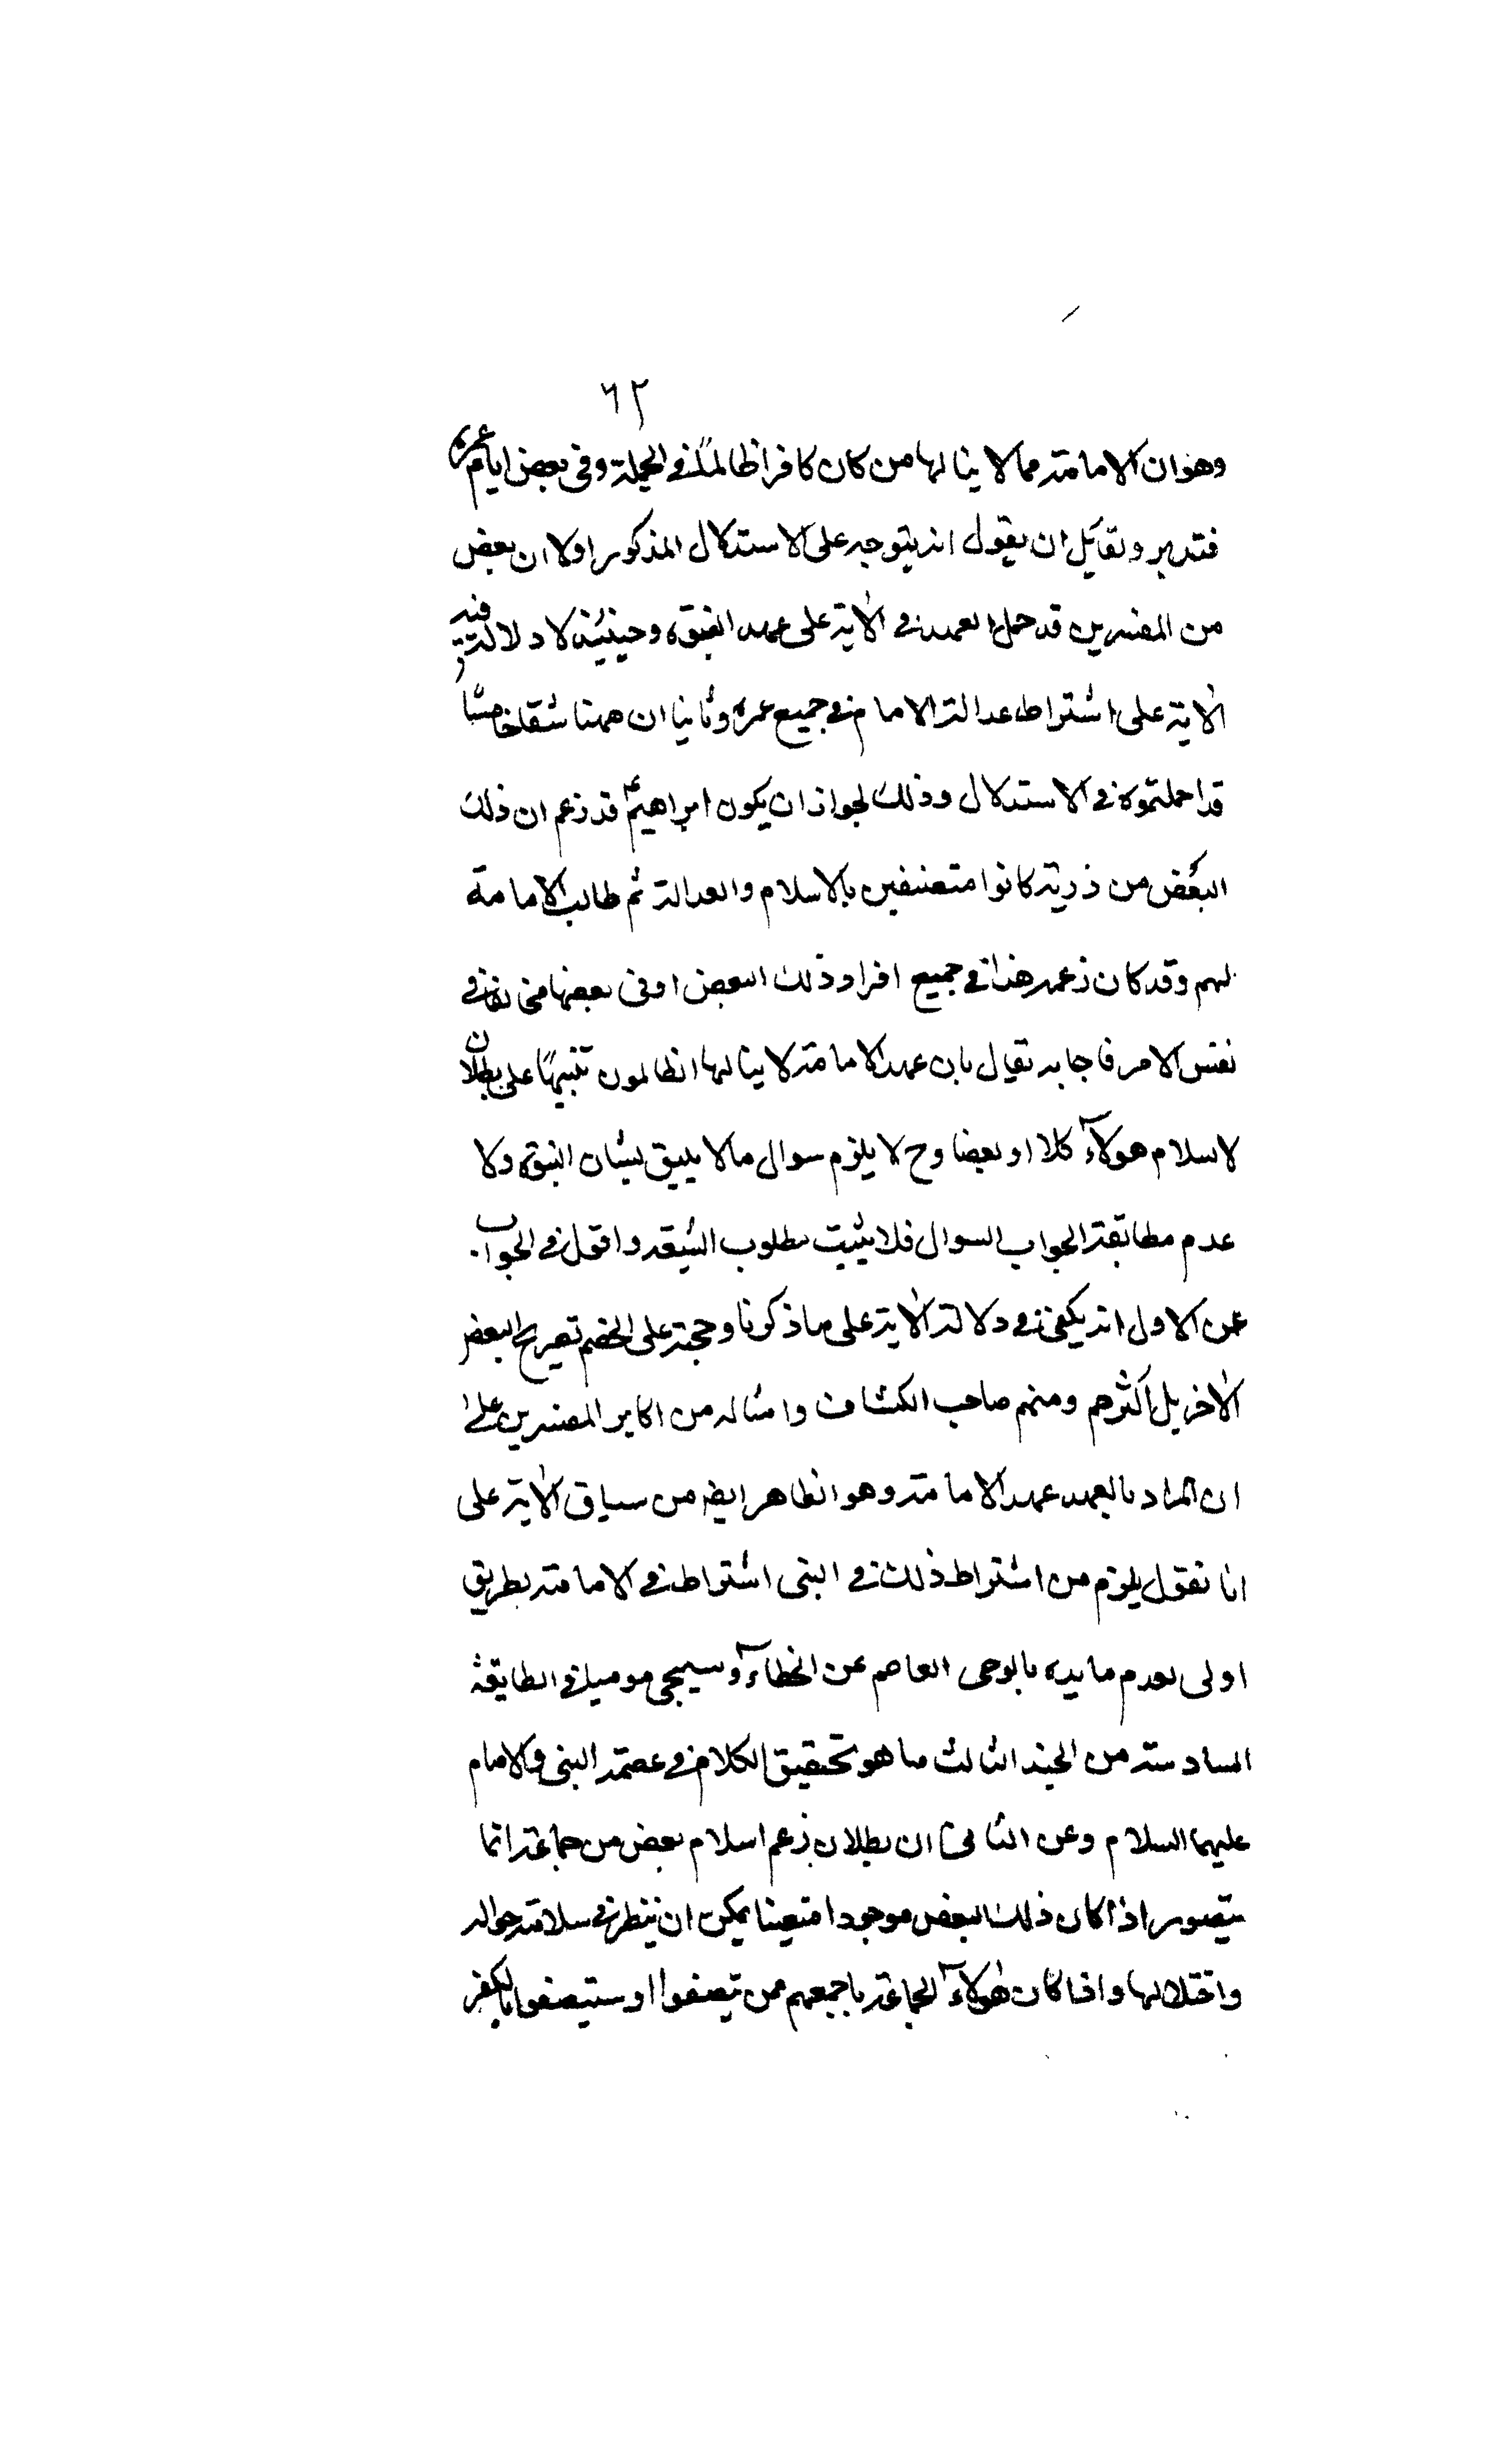 ٦٢
وهو ان الامامة مما لا ينالها من كان كافرا ظالما في الجملة وفي بعض ايام عمره
فتدبر ولقائل ان يقول انه يتوجه على الاستدلال المذكور اولا ان بعض
من المفسرين قد حمل العهد في الآية على عهد النبوة وحينئذ لا دلالة فيه
الآية على اشتراط عدالة الامام في جميع عمره وثانيا ان ههنا شقا خامسا
قد اهملتموه في الاستدلال وذلك لجواز ان يكون ابراهيم قد زعم ان ذلك
البعض من ذريته كانوا متصفين بالاسلام والعدالة ثم طالب الامامة
لهم وقد كان زعمه هذا في جميع افراد ذلك البعض او في بعضها
نفس الامر فاجابه تعالى بان عهد الامامة لا ينالها الظالمون تنبيها على بطلان
لاسلام هولاء كلا او بعضا وح لا يلزم سوال ما لا يليق بشان النبوة ولا
عدم مطابقة الجواب السوال فلا يثبت مطلوب الشيعة واقول في الجواب
عن الاول انه يكفي في دلالة الآية على ما ذكرنا وحجة على الخصم تصريح البعض
الآخر بل اكثرهم ومنهم صاحب الكشاف وامثاله من اكابر المفسرين على
ان المراد بالعهد عهد الامامة وهو الظاهر ايضا من سياق الآية على
انا نقول يلزم من اشتراط ذلك في النبي اشتراط في الامامة بطريق
اولى لعدم تاييده بالوحي العاصم عن الخطاء وسيجي في الطايفة
السادسة من الجند الثالث ما هو تحقيق الكلام في عصمة النبي والامام
عليهما السلام وعن الثاني ان بطلان زعم اسلام بعض من جماعة انما
يتصور اذا كان ذلك البعض موجودا متعينا يمكن ان ينظر في سلامة حواله
واختلالها واذا كان هولاء الجماعة باجمعهم ممن تصفوا او ستيصفوا بالكفر